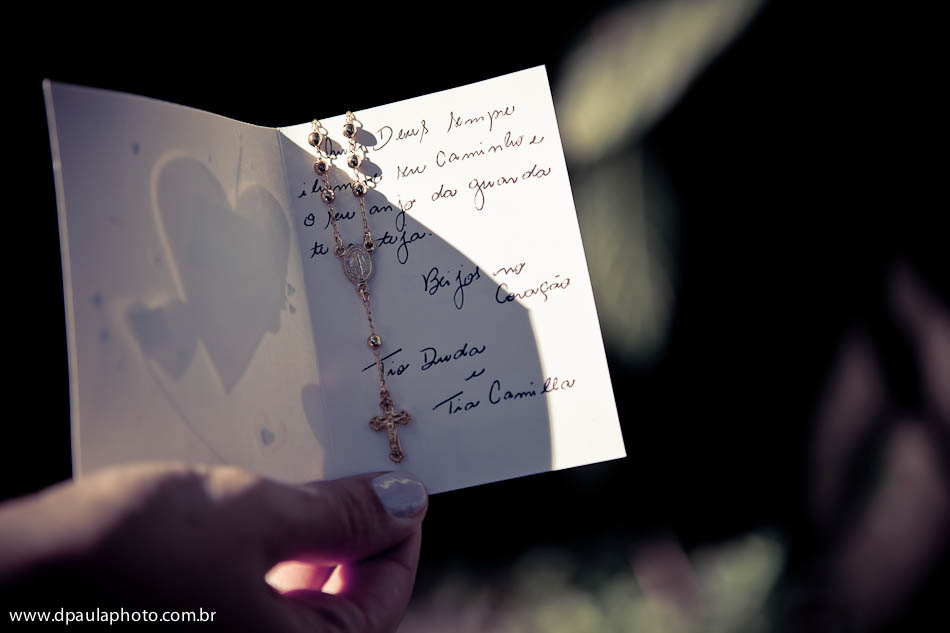 Deus sempre
seu Caminho e
o seu anjo da guarda
te
Beijos no
Coração
Tio Duda
e
Tia Camilla
www.dpaulaphoto.com.br